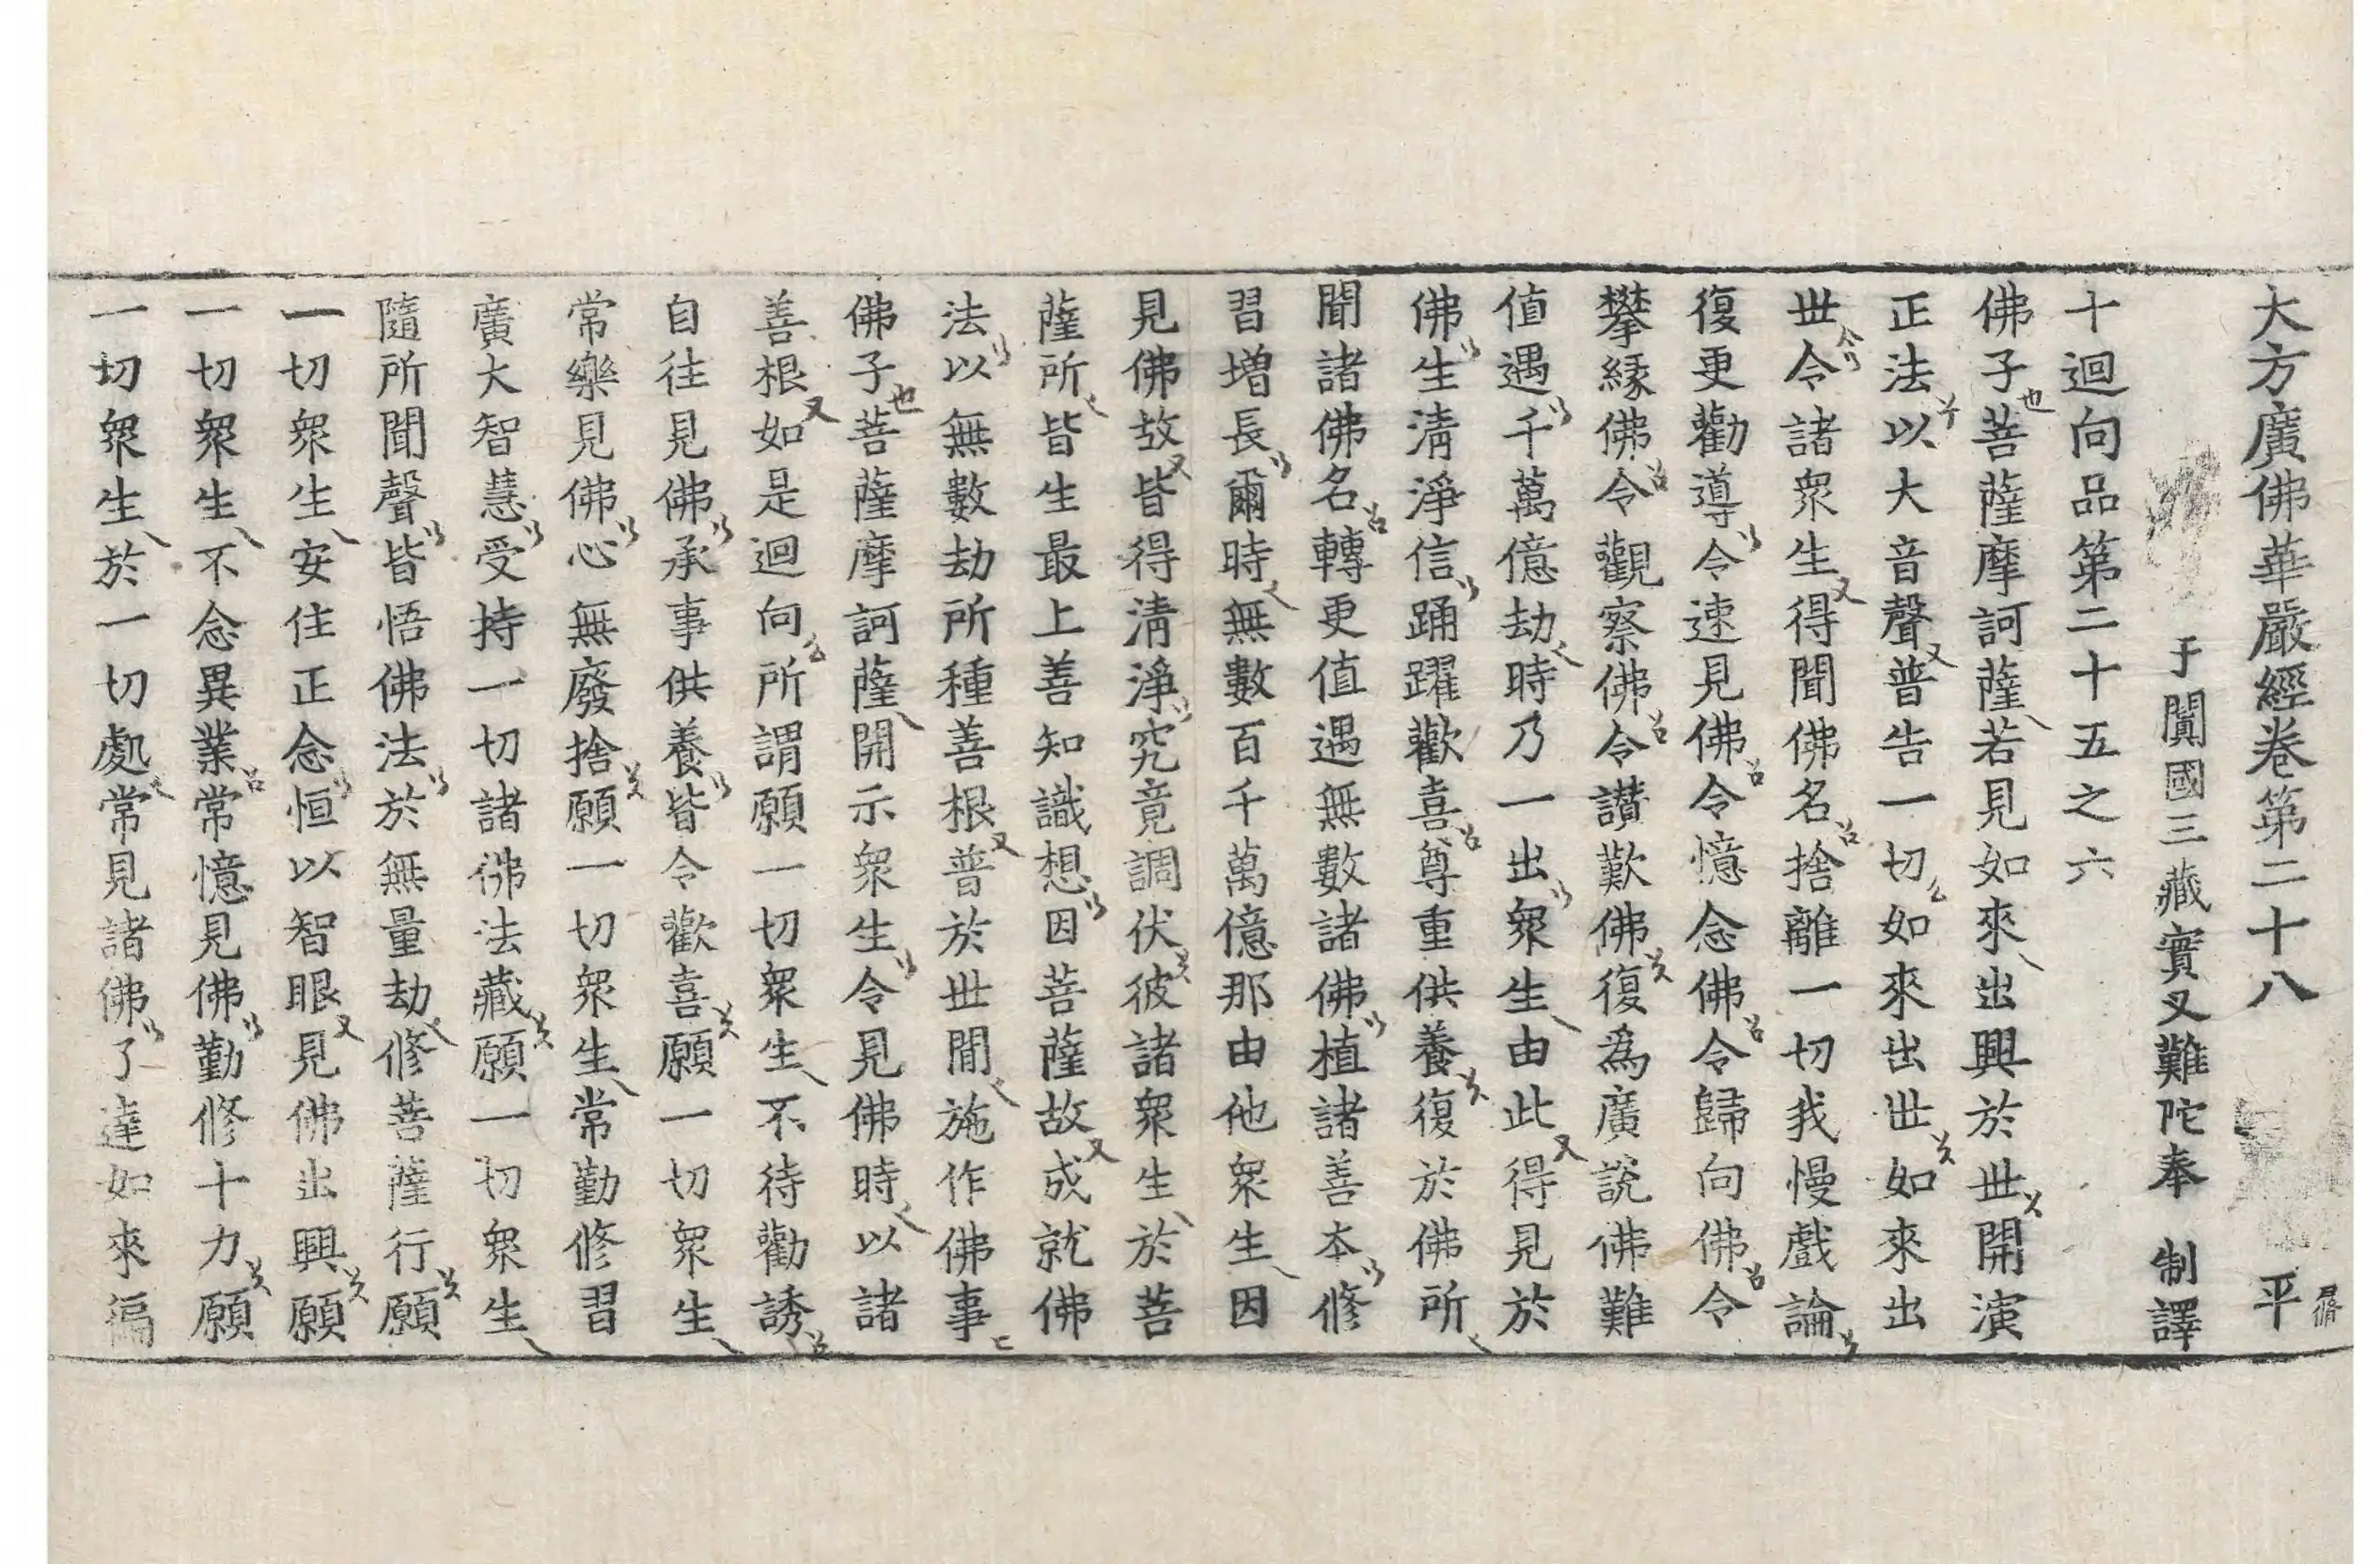 大方廣佛華嚴經卷第二十八 平
于闐國三藏實叉難陀奉 制譯
十迴向品第二十五之六
佛子菩薩摩訶薩若見如來出興於世開演
正法以大音聲普告一切如來出世如來出
世令諸衆生得聞佛名捨離一切我慢戲論
復更勸導令速見佛令憶念佛令歸向佛令
攀緣佛令觀察佛令讃歎佛復爲廣說佛難
值遇千萬億劫時乃一出衆生由此得見於
佛生淸淨信踊躍歡喜尊重供養復於佛所
聞諸佛名轉更值遇無數諸佛植諸善本修
習增長爾時無數百千萬億那由他衆生因
見佛故皆得淸淨究竟調伏彼諸衆生於菩
薩所皆生最上善知識想因菩薩故成就佛
法以無數劫所種善根普於世間施作佛事
佛子菩薩摩訶薩開示衆生令見佛時以諸
善根如是迴向所謂願一切衆生不待勸誘
自往見佛承事供養皆令歡喜願一切衆生
常樂見佛心無廢捨願一切衆生常勤修習
廣大智慧受持一切諸佛法藏願一切衆生
隨所聞聲皆悟佛法於無量劫修菩薩行願
一切衆生安住正念恒以智眼見佛出興願
一切衆生不念異業常憶見佛勤修十力願
一切衆生於一切處常見諸佛了達如來徧